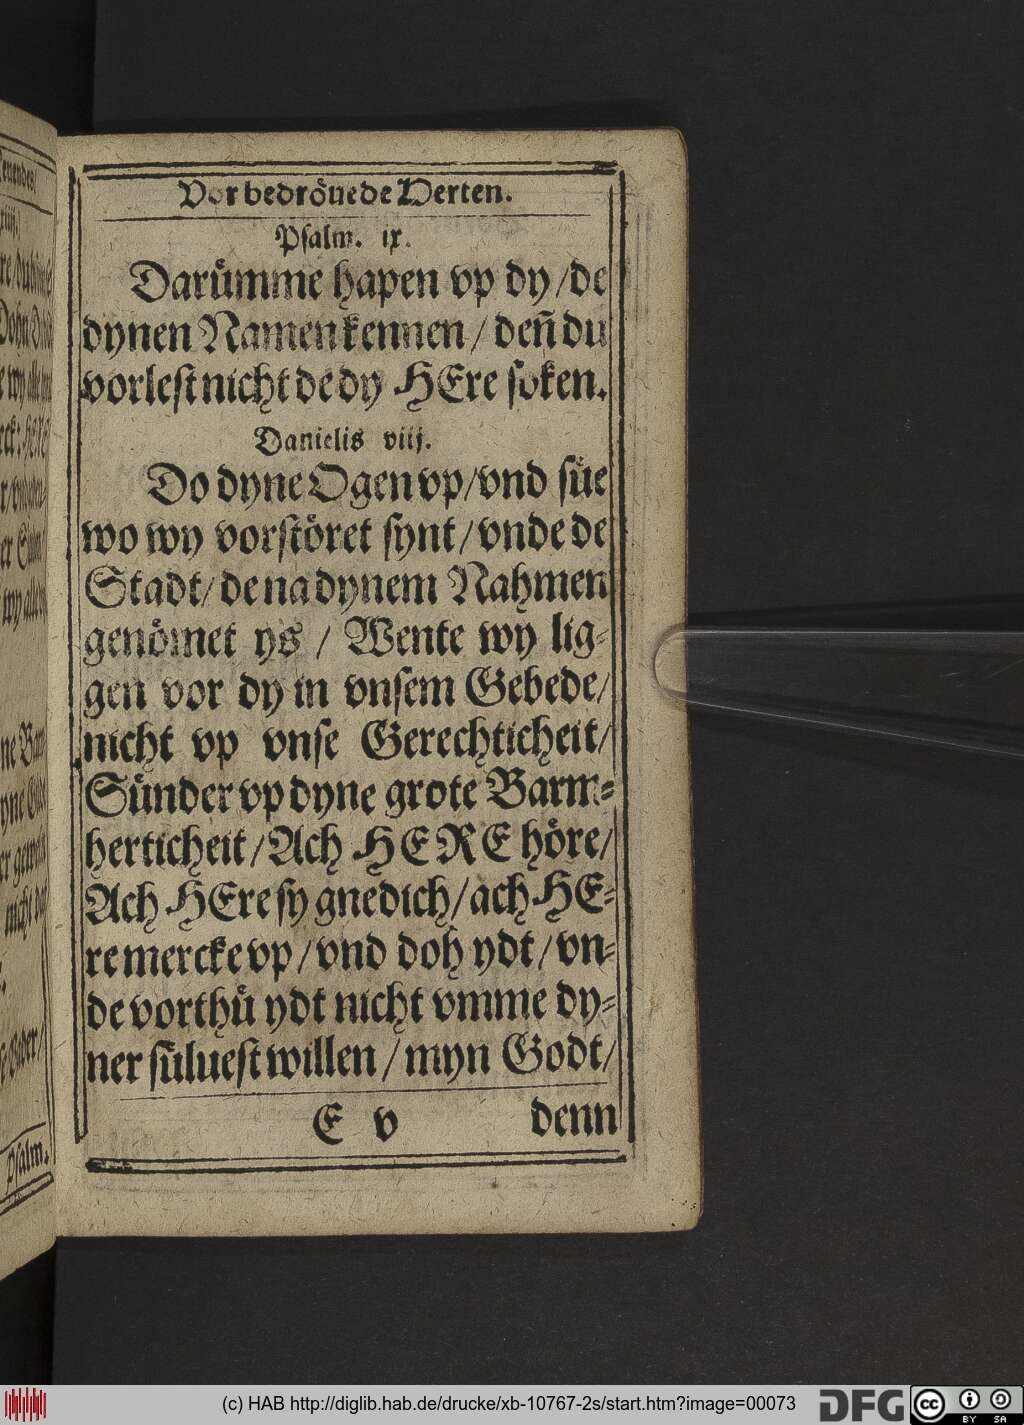 Vor bedröuede Herten.
Psalm. ix.
Darümme hapen vp dy / de
dynen Namen kennen / deñ du
vorlest nicht de dy HEre soken.
Danielis viij.
Do dyne Ogen vp / vnd süe
wo wy vorstöret synt / vnde de
Stadt / de na dynem Nahmen
genömet ys / Wente wy lig-
gen vor dy in vnsem Gebede /
nicht vp vnse Gerechticheit /
Sünder vp dyne grote Barm-
herticheit / Ach HERE höre /
Ach HEre sy gnedich / ach HE-
re mercke vp / vnd doh ydt / vn-
de vorthü ydt nicht vmme dy-
ner süluest willen / myn Godt /
E v denn
Psalm.
(c) HAB http://diglib.hab.de/drucke/xb-10767-2s/start.htm?image=00073
DFG
cc BY SA